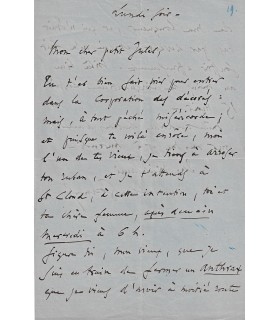 Lundi soir -
19.
Mon cher petit Jules,
Tu t'es bien fait prier pour entrer
dans la Corporation des décorés :
mais, à tout péché miséricorde ;
et puisque te voilà enrôlé, moi
l'un des vieux, je tiens à arroser
ton ruban, et je t'attends à
St Cloud, à cette intention, toi et
ta chère femme, après demain
mercredi à 6 h.
Figure toi, mon vieux, que je
suis en train de fermer un Anthrax
que je viens d'avoir à moitié route